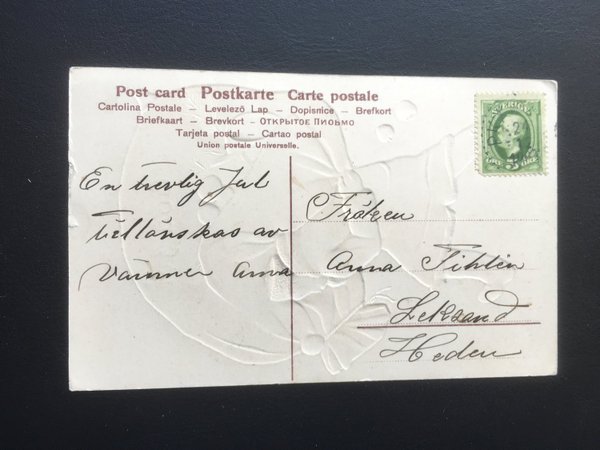 Post card Postkarte Carte postale
Cartolina Postale – Levelező Lap – Dopisnice – Brefkort
Briefkaart – Brevkort – ОТКРЫТОЕ ПИСЬМО
Tarjeta postal – Cartao postal
Union postale Universelle.
SVERIGE
ÖRE 5 ÖRE
En trevlig Jul
tillönskas av
vännen Anna
Fröken
Anna
Leksand
Heden